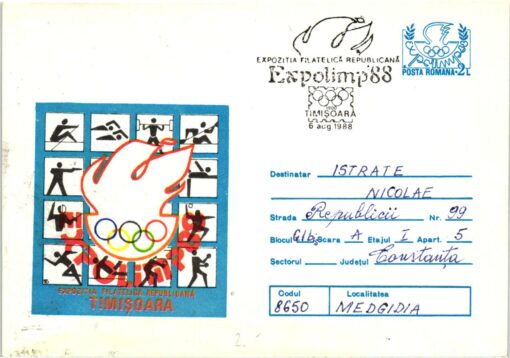 EXPOZIȚIA FILATELICĂ REPUBLICANĂ
Expolimp'88
TIMIȘOARA
6 aug. 1988
POSTA ROMANA-2L
Destinatar ISTRATE
NICOLAE
Strada Republicii Nr. 99
Blocul G1bis Scara A Etajul I Apart. 5
Sectorul Județul Constanța
Codul Localitatea
8650 MEDGIDIA
EXPOZIȚIA FILATELICĂ REPUBLICANĂ
TIMIȘOARA